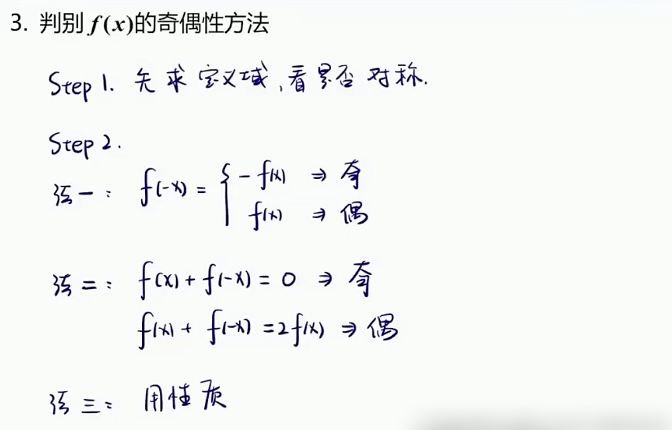 3. 判别 f(x)的奇偶性方法
Step 1. 先求定义域,看是否对称.
Step 2.
法一: f(-x) = { -f(x) ⇒ 奇
f(x) ⇒ 偶
法二: f(x) + f(-x) = 0 ⇒ 奇
f(x) + f(-x) = 2f(x) ⇒ 偶
法三: 用性质